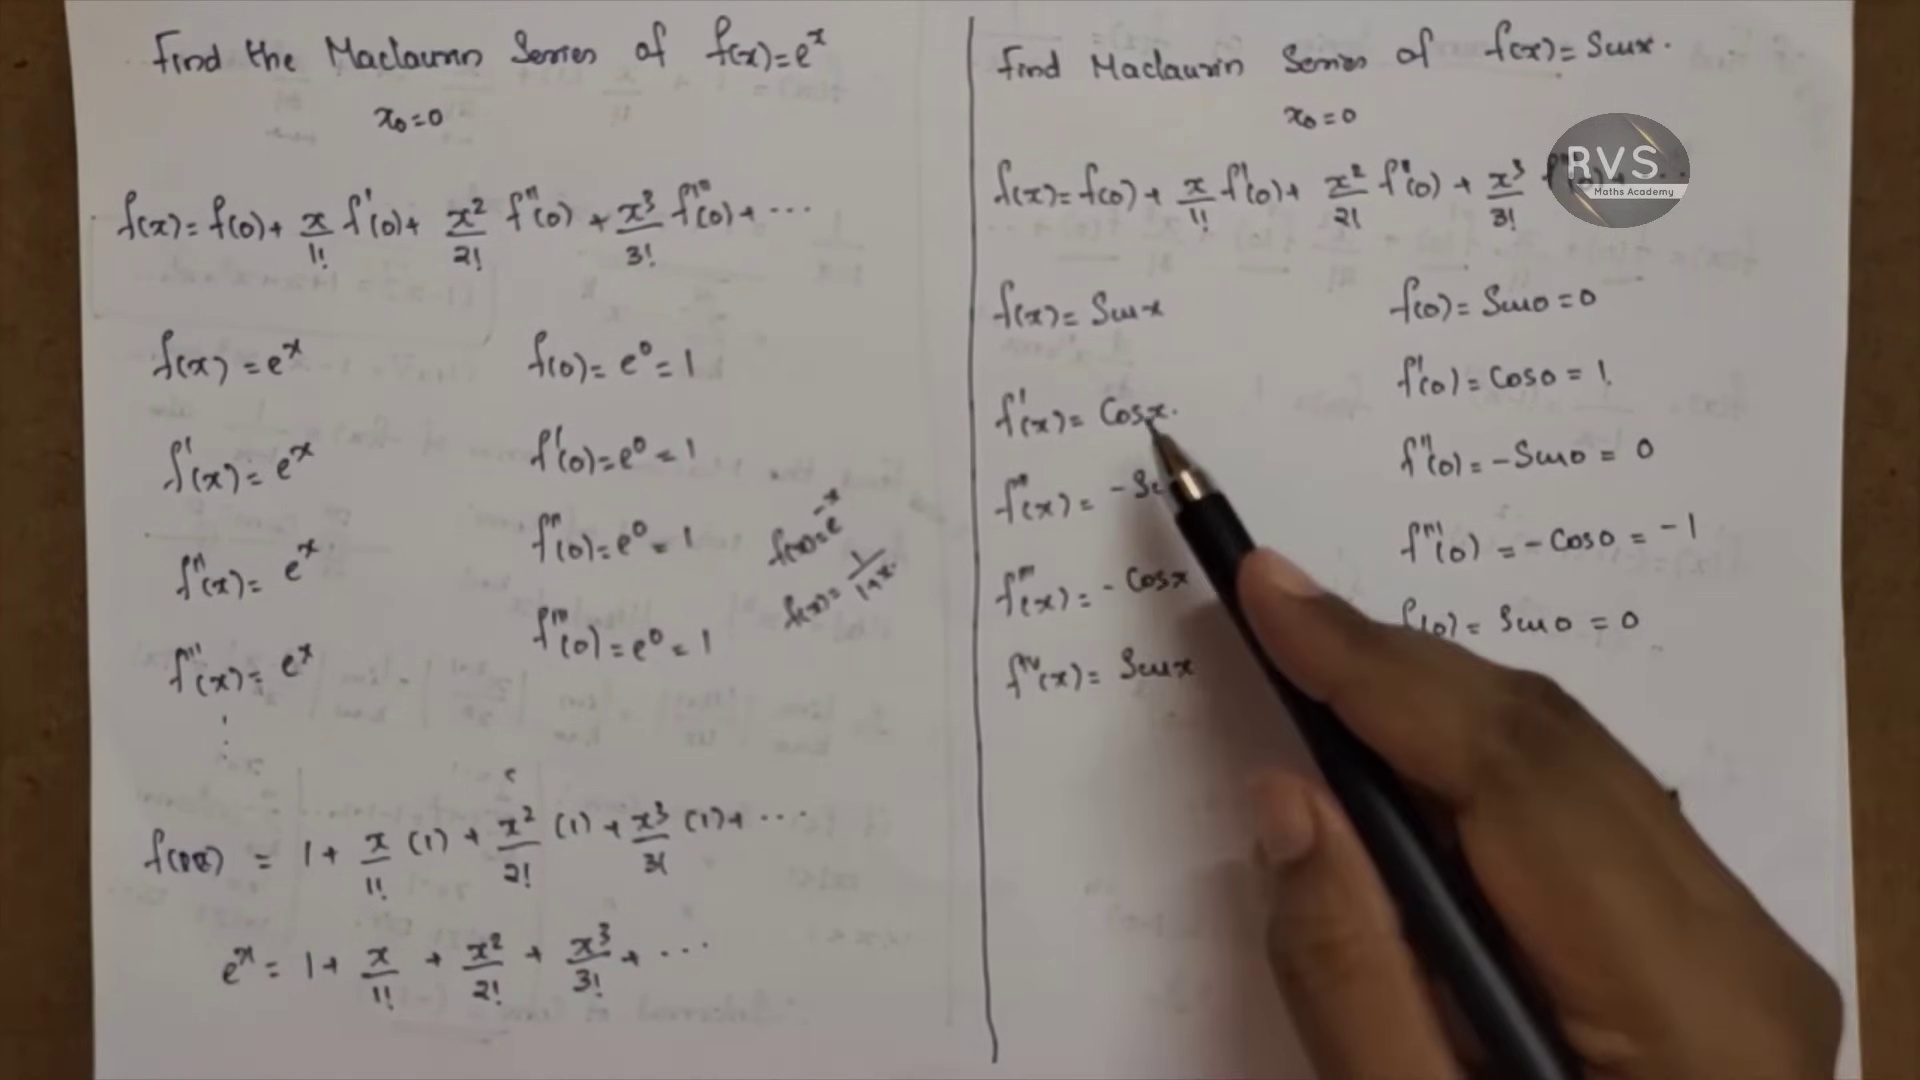 Find the Maclaurin Series of f(x)=eˣ
x₀=0
f(x)= f(0)+ x/1! f'(0)+ x²/2! f''(0) + x³/3! f'''(0)+ ...
f(x) = eˣ f(0)= e⁰= 1
f'(x)= eˣ f'(0)=e⁰ = 1
f''(x)= eˣ f''(0)=e⁰ = 1
f'''(x)= eˣ f'''(0)=e⁰ = 1
f(x)=e⁻ˣ
f(x)= 1/1+x.
= 1+ x/1! (1) + x²/2! (1) + x³/3! (1)+ ...
eˣ = 1+ x/1! + x²/2! + x³/3! + ...
Find Maclaurin Series of f(x)= Sinx.
x₀=0
f(x)= f(0)+ x/1! f'(0)+ x²/2! f''(0) + x³/3!
RVS
Maths Academy
f(x)= Sinx f(0)= Sin0=0
f'(x)= Cosx. f'(0)= Cos0 = 1.
f''(x)= f''(0)= -Sin0 = 0
f'''(x)= - Cosx f'''(0) = - Cos0 = -1
fⁱᵛ(x)= Sinx (0)= Sin0 = 0